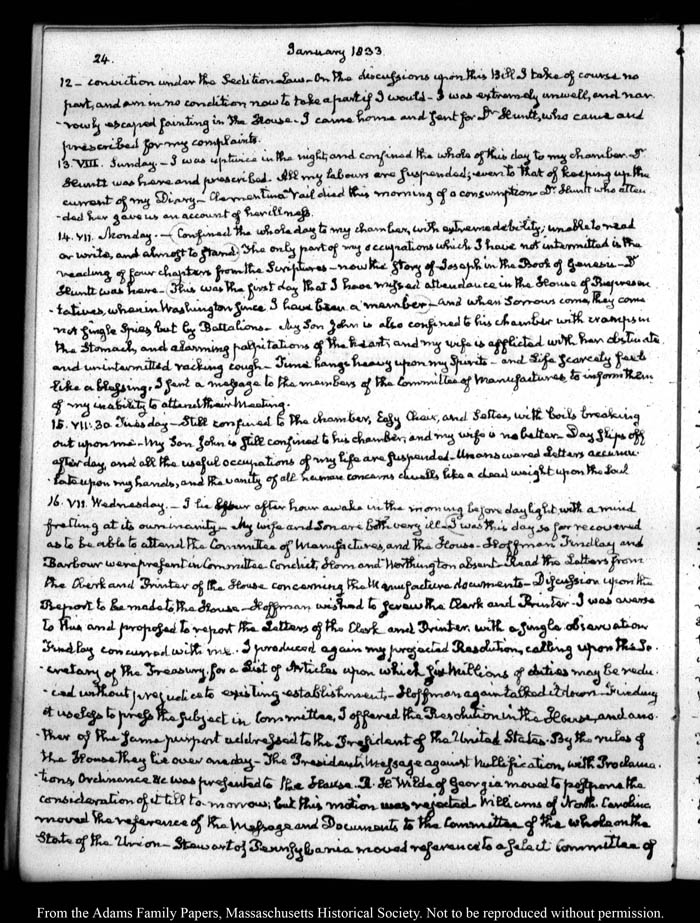 24.
January 1833.
12 - conviction under the Sedition Law - On the discussions upon this Bill I take of course no
part, and am in no condition now to take a part if I would - I was extremely unwell, and nar-
-rowly escaped fainting in the House - I came home and sent for Dr. Huntt, who came and
prescribed for my complaints.
13. VIII. Sunday. - I was up twice in the night, and confined the whole of this day to my chamber. Dr.
Huntt was here and prescribed. All my labours are suspended; even to that of keeping up the
current of my Diary - Clementina Vail died this morning of a consumption Dr. Huntt who atten-
-ded her gave us an account of her illness.
14. VII. Monday. - Confined the whole day to my chamber, with extreme debility; unable to read
or write, and almost to stand. The only part of my occupations which I have not intermitted is the
reading of four chapters from the Scriptures - now the Story of Joseph in the Book of Genesis - Dr.
Huntt was here - This was the first day that I have missed attendance in the House of Represen-
-tatives, when in Washington since I have been a member - and when Sorrows come, they come
not single Spies but by Battalions - My Son John is also confined to his chamber with cramps in
the Stomach, and alarming palpitations of the heart; and my wife is afflicted with her obstinate
and unintermitted racking cough - Time hangs heavy upon my Spirits - and Life scarcely feels
like a blessing. I sent a message to the members of the Committee of Manufactures, to inform them
of my inability to attend their Meeting.
15. VII:30. Tuesday - Still confined to the chamber, Easy Chair, and Settee, with boils breaking
out upon me - My Son John is still confined to his chamber, and my wife is no better - Day slips off
after day, and all the useful occupations of my life are suspended - Unanswered letters accumu-
late upon my hands, and the vanity of all human concerns dwells like a dead weight upon the Soul
16. VII. Wednesday. - I lie hour after hour awake in the morning before daylight, with a mind
fretting at its own inanity - My wife and Son are both very ill - I was this day so far recovered
as to be able to attend the Committee of Manufactures and the House - Hoffman Findlay and
Barbour were present in Committee. Condict, Horn and Worthington absent - Read the Letters from
the Clerk and Printer of the House concerning the Manufacture documents - Discussion upon the
Report to be made to the House - Hoffman wished to screw the Clerk and Printer - I was averse
to this and proposed to report the Letters of the Clerk and Printer, with a single observation
Findlay concurred with me. I produced again my projected Resolution, calling upon the Se-
-cretary of the Treasury, for a List of Articles upon which six Millions of duties may be redu-
-ced without prejudice to existing establishments - Hoffman again talked it down - Finding
it useless to press the subject in Committee, I offered the Resolution in the House, and ano-
-ther of the same purport addressed to the President of the United States. By the rules of
the House they lie over one day - The President's Message against Nullification, with Proclama-
-tions, Ordinance &c was presented to the House. R. H. Wilde of Georgia moved to postpone the
consideration of it till to-morrow; but this motion was rejected. Williams of North Carolina
moved the reference of the Message and Documents to the Committee of the whole on the
State of the Union - Stewart of Pennsylvania moved reference to a select Committee of
From the Adams Family Papers, Massachusetts Historical Society. Not to be reproduced without permission.